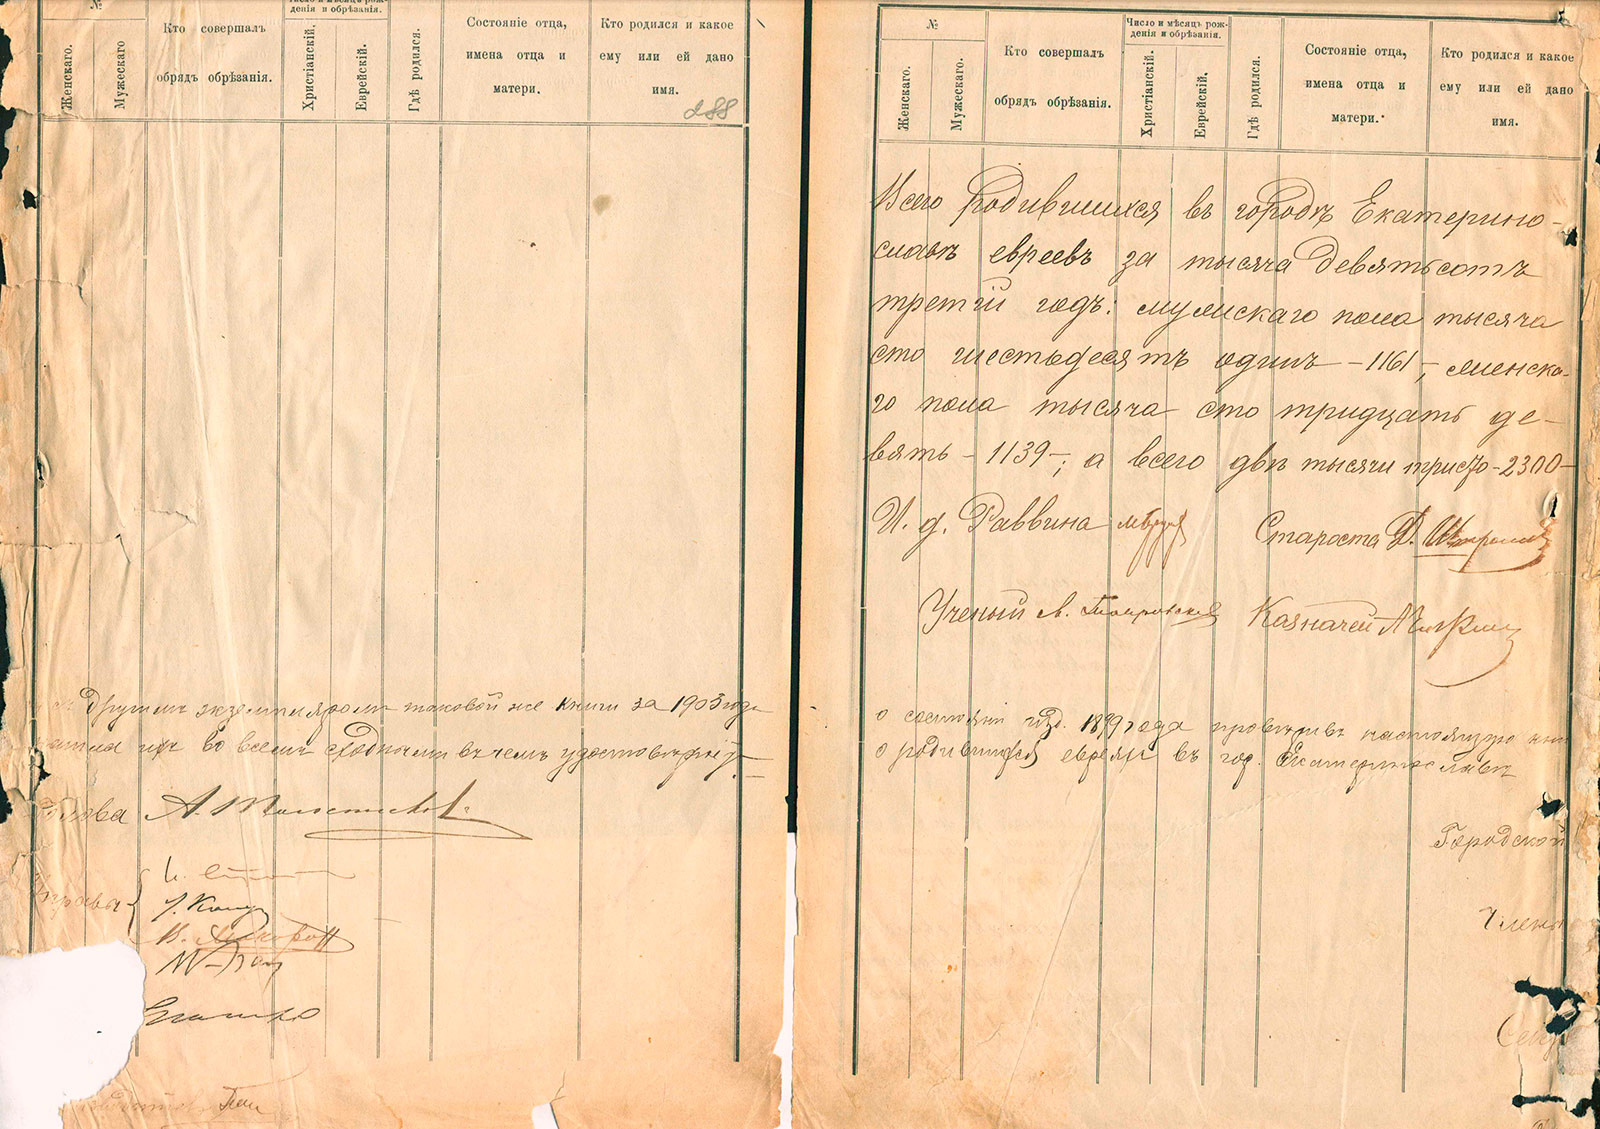 №
Женскаго.
Мужескаго
Кто совершалъ
обрядъ обрѣзанія.
Число и мѣсяцъ рож-
денія и обрѣзанія.
Христіанскій.
Еврейскій.
Гдѣ родился.
Состояніе отца,
имена отца и
матери.
Кто родился и какое
ему или ей дано
имя.
288
другимъ экземпляромъ таковой же книги за 1903 года
ихъ во всемъ сходными въ чемъ удостовѣряю
А. Толстиков
№
Женскаго.
Мужескаго.
Кто совершалъ
обрядъ обрѣзанія.
Число и мѣсяцъ рож-
денія и обрѣзанія.
Христіанскій.
Еврейскій.
Гдѣ родился.
Состояніе отца,
имена отца и
матери.
Кто родился и какое
ему или ей дано
имя.
Всего родившихся въ городѣ Екатерино-
славѣ евреевъ за тысяча девятьсотъ
третій годъ: мужскаго пола тысяча
сто шестьдесятъ одинъ -1161-, женска-
го пола тысяча сто тридцать де-
вять -1139-; а всего двѣ тысячи триста -2300-
И. д. Раввина
Староста Д.
Ученый А.
Казначей
о состояніи изд. 1899 года провѣривъ настоящую кни
о родившихся евреяхъ въ гор. Екатеринославѣ
Городской
Члены
Секр